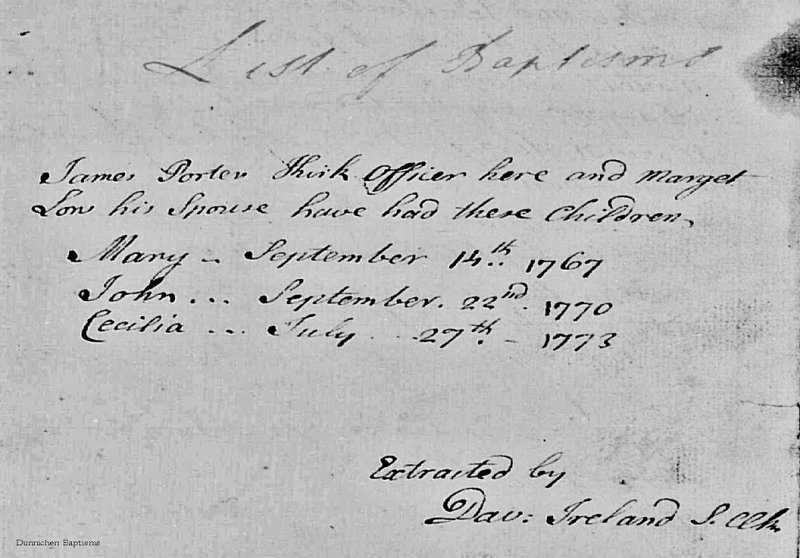 List of Baptisms
James Porter Kirk Officer here and Marget
Low his Spouse have had these Children
Mary .. September 14th. 1767
John ... September. 22nd. 1770
Cecilia ... July .. 27th. - 1773
Extracted by
Dav: Ireland S. Clk
Dunnichen Baptisms